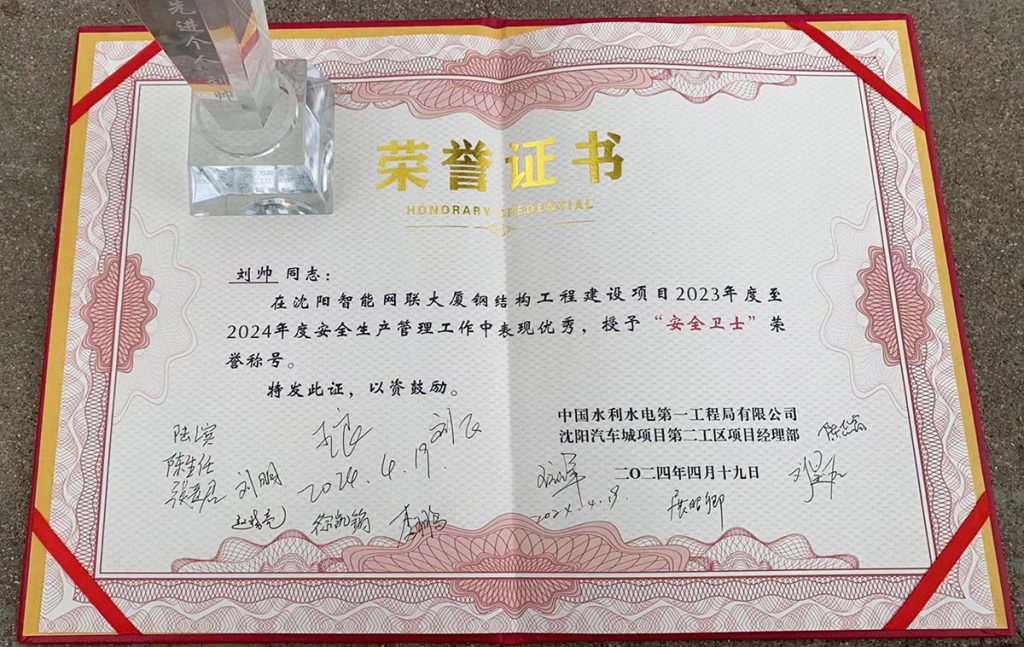 先进个人
荣誉证书
HONORARY CREDENTIAL
刘帅 同志：
在沈阳智能网联大厦钢结构工程建设项目2023年度至
2024年度安全生产管理工作中表现优秀，授予“安全卫士”荣
誉称号。
特发此证，以资鼓励。
中国水利水电第一工程局有限公司
沈阳汽车城项目第二工区项目经理部
二〇二四年四月十九日
陆滨
刘飞
陈生任
刘明
2024.4.19.
徐凯锅
2024.4.19.